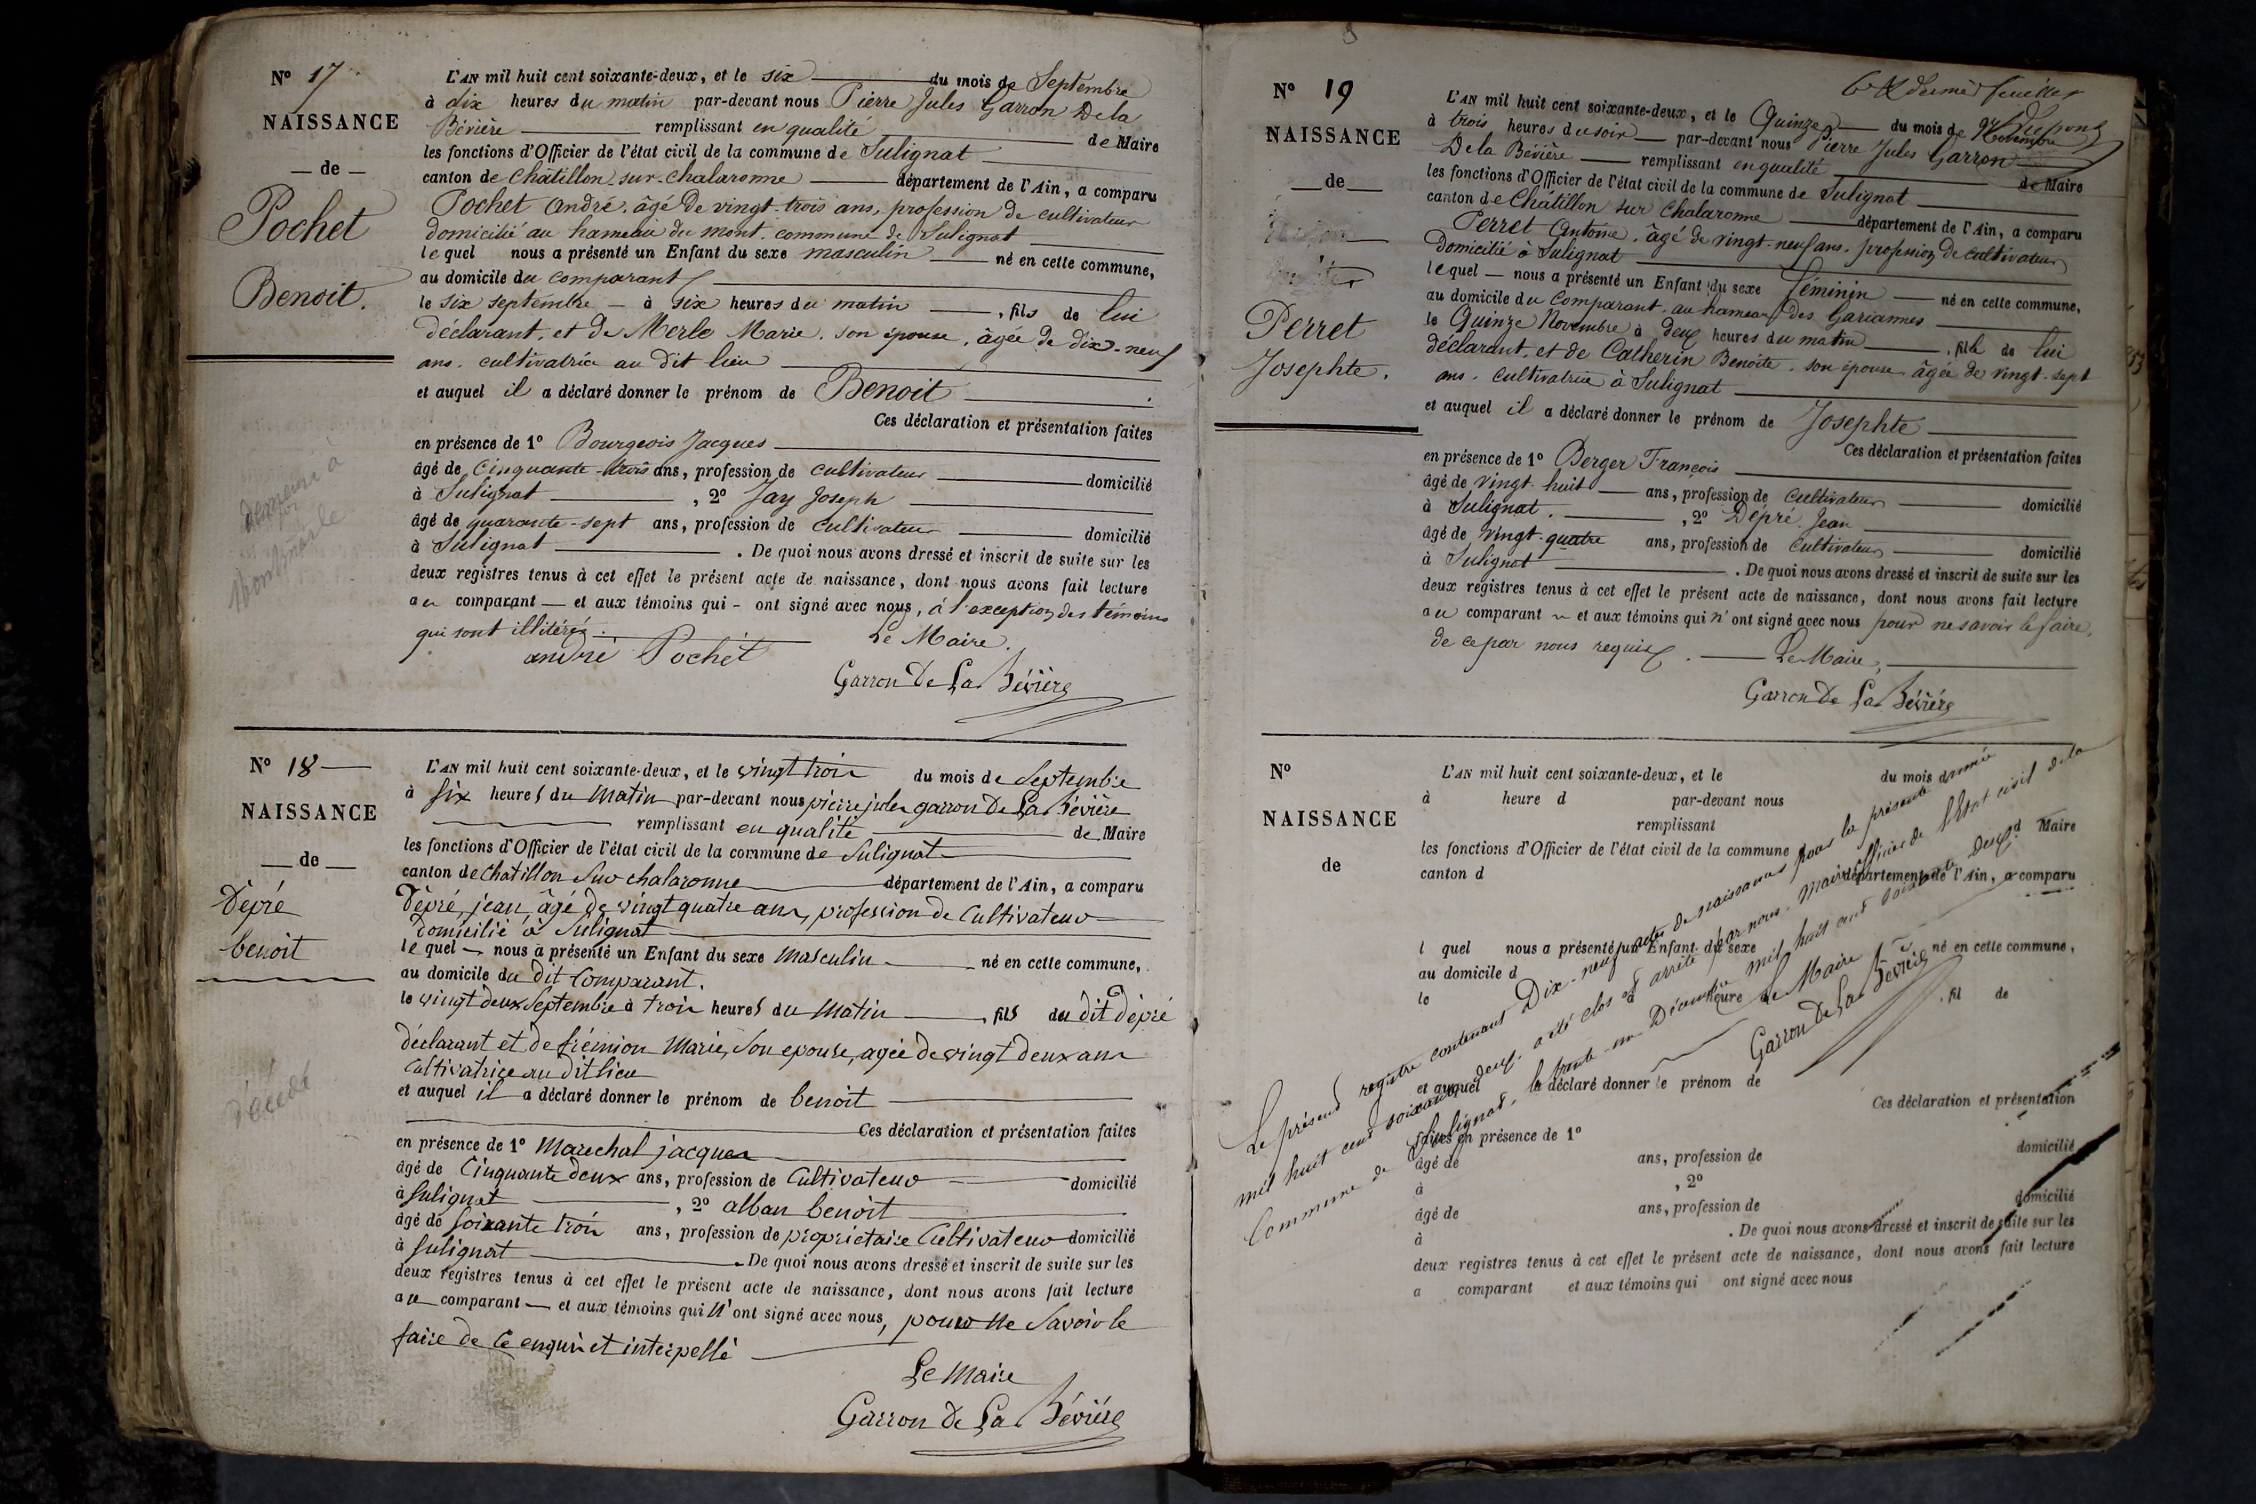 N° 17
NAISSANCE
de
Pochet
Benoit.
L'AN mil huit cent soixante-deux, et le six du mois de Septembre
à dix heures du matin par-devant nous Pierre Jules Garron De la
Bévière remplissant en qualité de Maire
les fonctions d'Officier de l'état civil de la commune de Sulignat
canton de Châtillon-sur-Chalaronne département de l'Ain, a comparu
Pochet André, âgé de vingt-trois ans, profession de cultivateur
domicilié au hameau du mont. commune de Sulignat
lequel nous a présenté un Enfant du sexe masculin né en cette commune,
au domicile du comparant
le six septembre à six heures du matin, fils de lui
déclarant, et de Merle Marie, son épouse, âgée de dix-neuf
ans. cultivatrice au dit lieu
et auquel il a déclaré donner le prénom de Benoit
Ces déclaration et présentation faites
en présence de 1° Bourgeois Jacques
âgé de cinquante-trois ans, profession de cultivateur domicilié
à Sulignat, 2° Jay Joseph
âgé de quarante-sept ans, profession de cultivateur domicilié
à Sulignat. De quoi nous avons dressé et inscrit de suite sur les
deux registres tenus à cet effet le présent acte de naissance, dont nous avons fait lecture
au comparant et aux témoins qui ont signé avec nous, à l'exception des témoins
qui sont illitérés.
andré Pochet
Le Maire.
Garron De La Bévière
N° 18
NAISSANCE
de
Dépré
benoit
décédé
L'AN mil huit cent soixante-deux, et le vingt trois du mois de Septembre
à six heures du matin par-devant nous pierre jules garron De La Bévière
remplissant en qualité de Maire
les fonctions d'Officier de l'état civil de la commune de Sulignat
canton de chatillon Sur chalaronne département de l'Ain, a comparu
Dépré, jean, âgé de vingt quatre ans, profession de Cultivateur
domicilié à Sulignat
lequel nous a présenté un Enfant du sexe Masculin né en cette commune,
au domicile du dit Comparant.
le vingt deux Septembre à trois heures du Matin, fils du dit dépré
déclarant et de Marie, Son epouse, agée de vingt deux ans
Cultivatrice au dit lieu
et auquel il a déclaré donner le prénom de benoit
Ces déclaration et présentation faites
en présence de 1° Marechal jacques
âgé de Cinquante deux ans, profession de Cultivateur domicilié
à Sulignat, 2° alban benoit
âgé de Soixante trois ans, profession de propriétaire Cultivateur domicilié
à Sulignat. De quoi nous avons dressé et inscrit de suite sur les
deux registres tenus à cet effet le présent acte de naissance, dont nous avons fait lecture
au comparant et aux témoins qui n'ont signé avec nous, pour ne Savoir le
faire de ce enquis et interpellé
Le Maire
Garron De La Bévière
N° 19
NAISSANCE
de
Perret
Josephte.
L'AN mil huit cent soixante-deux, et le Quinze du mois de Novembre
à trois heures du soir par-devant nous Pierre Jules Garron
De la Bévière remplissant en qualité de Maire
les fonctions d'Officier de l'état civil de la commune de Sulignat
canton de Châtillon sur Chalaronne département de l'Ain, a comparu
Perret Antoine, âgé de vingt-neuf ans, profession de cultivateur
domicilié à Sulignat
lequel nous a présenté un Enfant du sexe féminin né en cette commune,
au domicile du comparant au hameau des Gariannes
le Quinze Novembre à deux heures du matin, fille de lui
déclarant, et de Catherin Benoite, son épouse âgée de vingt-sept
ans. cultivatrice à Sulignat
et auquel il a déclaré donner le prénom de Josephte
Ces déclaration et présentation faites
en présence de 1° Berger François
âgé de vingt-huit ans, profession de cultivateur domicilié
à Sulignat, 2° Dépré Jean
âgé de vingt-quatre ans, profession de cultivateur domicilié
à Sulignat. De quoi nous avons dressé et inscrit de suite sur les
deux registres tenus à cet effet le présent acte de naissance, dont nous avons fait lecture
au comparant et aux témoins qui n'ont signé avec nous pour ne savoir le faire,
de ce par nous requis. Le Maire,
Garron De La Bévière
N°
NAISSANCE
de
L'AN mil huit cent soixante-deux, et le du mois d
à heure d par-devant nous
remplissant d Maire
les fonctions d'Officier de l'état civil de la commune d
canton d département de l'Ain, a comparu
l quel nous a présenté un Enfant du sexe né en cette commune,
au domicile d
le à heure , fil de
et auquel a déclaré donner le prénom de
Ces déclaration et présentation
faites en présence de 1°
âgé de ans, profession de domicilié
à , 2°
âgé de ans, profession de domicilié
à . De quoi nous avons dressé et inscrit de suite sur les
deux registres tenus à cet effet le présent acte de naissance, dont nous avons fait lecture
a comparant et aux témoins qui ont signé avec nous
Le présent registre contenant Dix-neuf actes de naissances pour la présente année
mil huit cent soixante deux, a été clos et arrêté par nous, Maire officier de l'Etat civil de la
Commune de Sulignat, le trente un Décembre mil huit cent soixante deux.
Le Maire
Garron De La Bévière